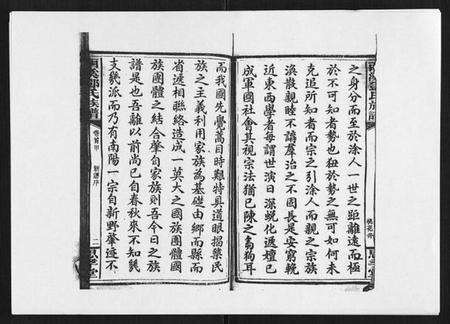 之身分而至於涂人一世之距離遠而極
於不可知者勢也狃於勢之無可如何未
克追所知者而宗之引涂人而親之宗族
渙散親睦不講羣治之不固長是安窮輓
近東西學者每謂世演日深蛻化遞嬗已
成軍國社會其視宗法猶已陳之芻狗耳
而我國先覺蒿目時難特具道眼揭櫫民
族之主義利用家族為基礎由鄉而縣而
省遞相聯絡造成一莫大之國族團體國
族團體之結合肇自家族則吾今日之族
譜是也吾離以前尚已自春秋來不知幾
支幾派而乃有南陽一宗自新野肇迹不
卷首
二